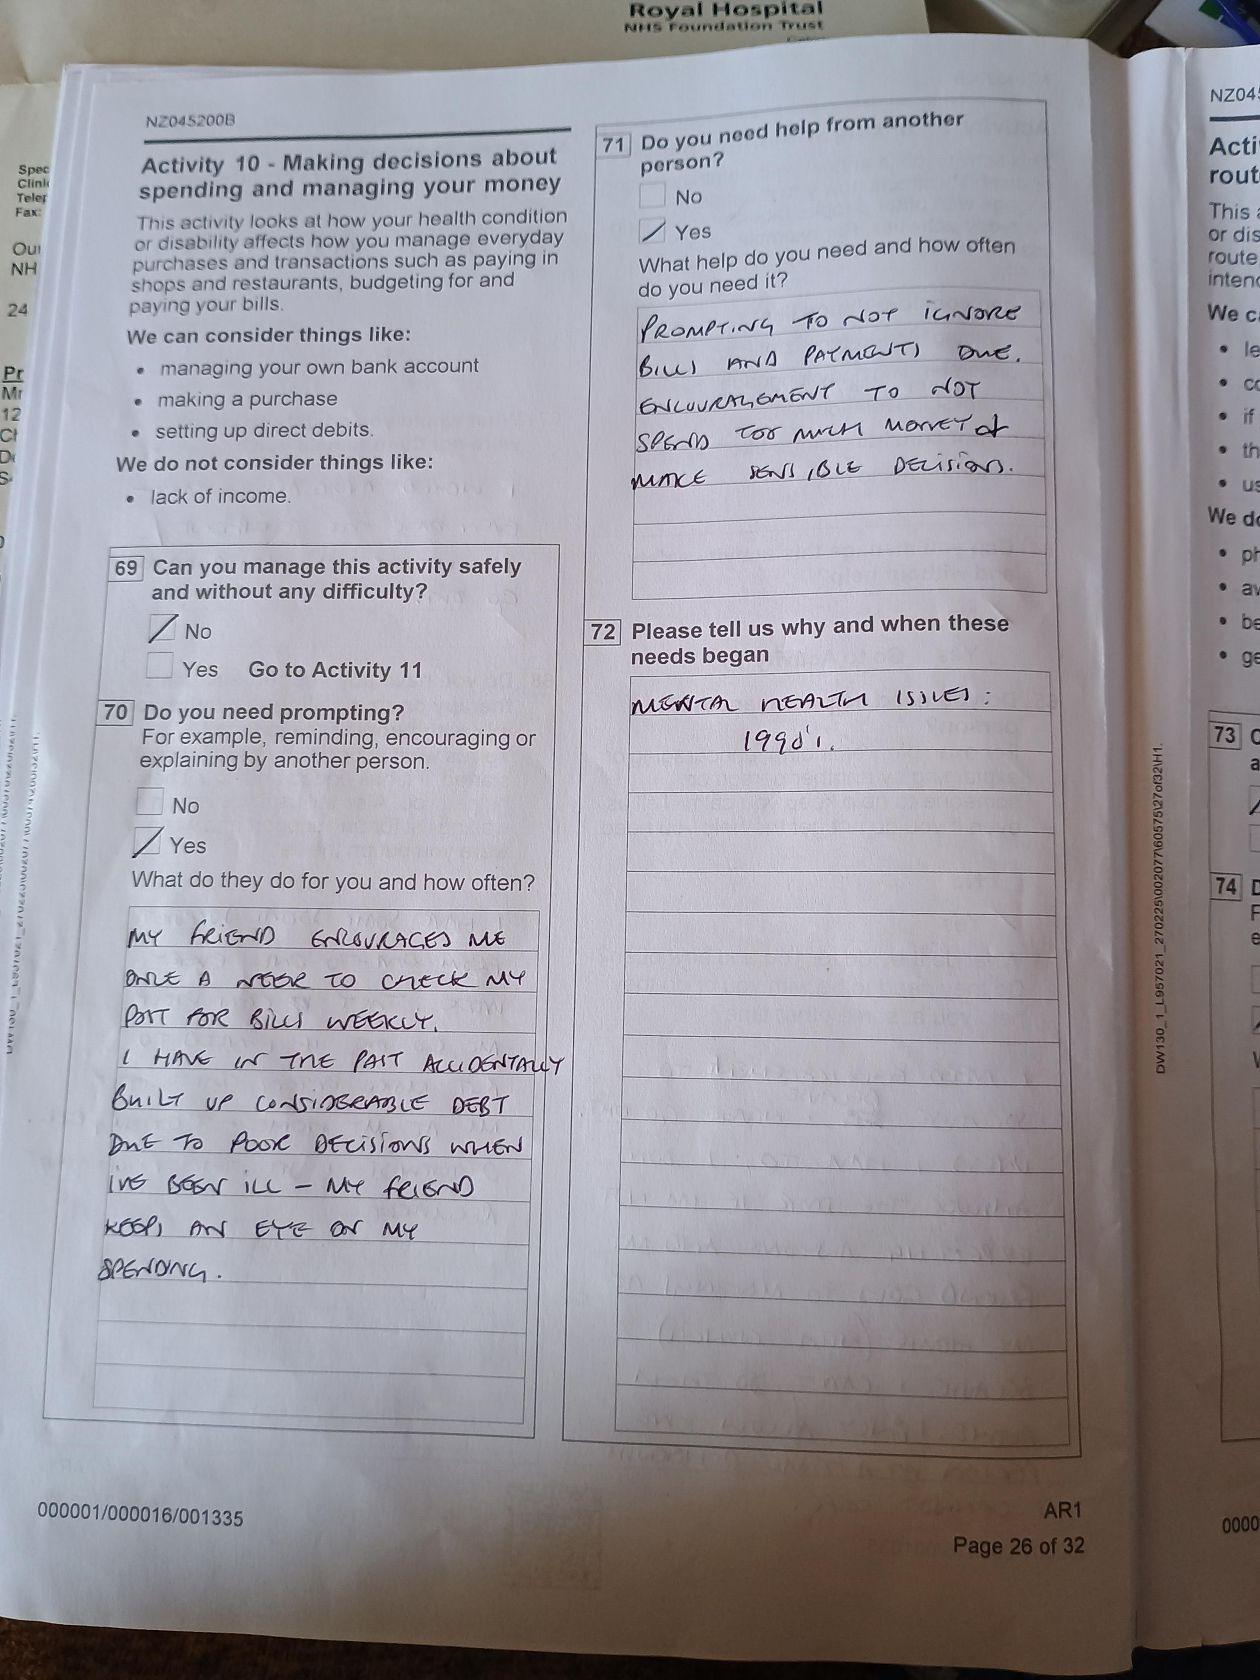 Royal Hospital
NHS Foundation Trust
Spec
Clini
Telep
Fax:
Our
NH
24
Pr
Mr
12
NZ045200B
Activity 10 - Making decisions about
spending and managing your money
This activity looks at how your health condition
or disability affects how you manage everyday
purchases and transactions such as paying in
shops and restaurants, budgeting for and
paying your bills.
We can consider things like:
• managing your own bank account
• making a purchase
• setting up direct debits.
We do not consider things like:
• lack of income.
69 Can you manage this activity safely
and without any difficulty?
No
Yes Go to Activity 11
70 Do you need prompting?
For example, reminding, encouraging or
explaining by another person.
No
Yes
What do they do for you and how often?
MY FRIEND ENCOURAGES ME
ONCE A WEEK TO CHECK MY
POST FOR BILLS WEEKLY.
I HAVE IN THE PAST ACCIDENTALLY
BUILT UP CONSIDERABLE DEBT
DUE TO POOR DECISIONS WHEN
IVE BEEN ILL – MY FRIEND
KEEPS AN EYE ON MY
SPENDING.
71 Do you need help from another
person?
No
Yes
What help do you need and how often
do you need it?
PROMPTING TO NOT IGNORE
BILLS AND PAYMENTS DUE.
ENCOURAGEMENT TO NOT
SPEND TOO MUCH MONEY &
MAKE SENSIBLE DECISIONS.
72 Please tell us why and when these
needs began
MENTAL HEALTH ISSUES:
1990's.
000001/000016/001335
AR1
Page 26 of 32
DW130_1_L957021_270225\002077\60575\27of32\H1.
NZ045
Acti
rout
This a
or dis
route
intend
We ca
• le
• co
• if
• th
• us
We do
• ph
• av
• be
• ge
73
74
0000